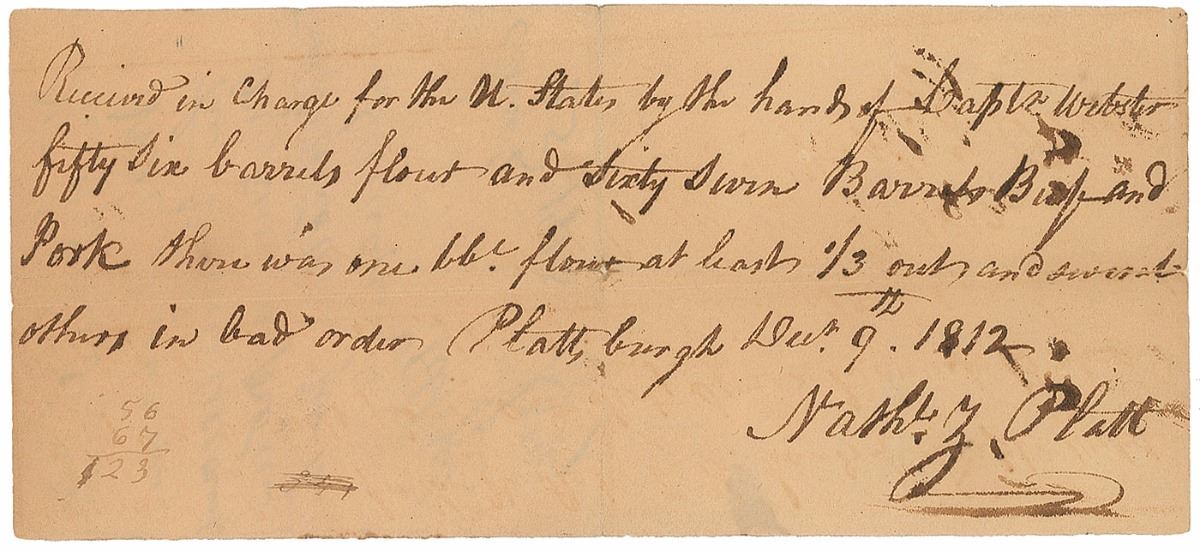 Received in Charge for the U. States by the hands of Captn Webster
fifty Six barrels flour and Sixty Seven Barrels Beef and
Pork there was one bbl. flour at least 1/3 out, and several
others in bad order Plattsburgh Decr. 9th. 1812
Nathl. Z. Platt
56
67
123